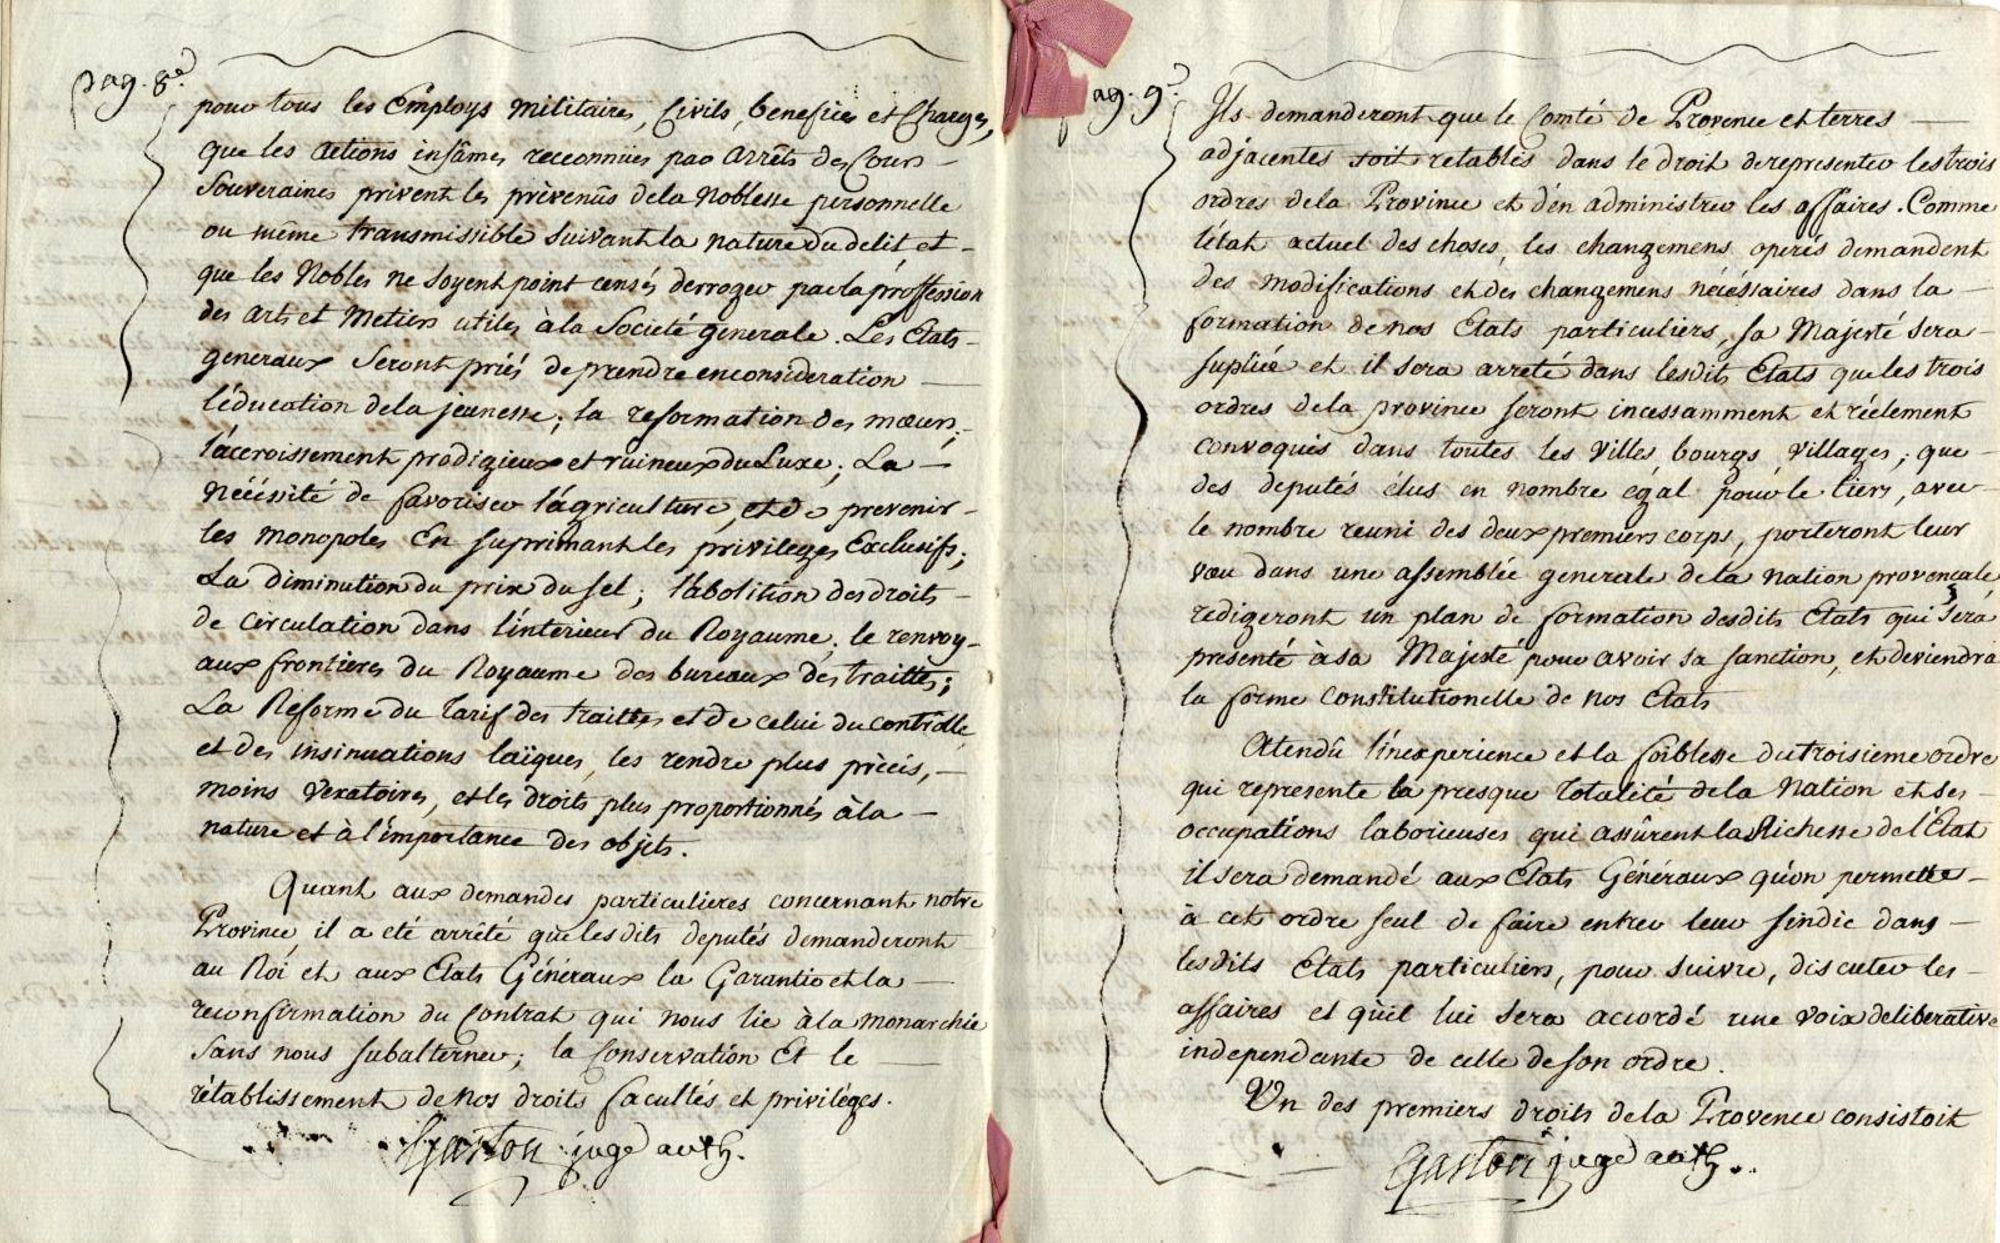 pag. 8e.
pour tous les Employs militaires, Civils, benefices et Charges,
que les actions infâmes reconnües par arrêts des Cours
Souveraines privent les prèvenûs de la noblesse personnelle
ou même transmissible suivant la nature du delit, et
que les Nobles ne soyent point censés derroger par la proffession
des arts et metiers utiles à la Societé generale. Les Etats
generaux seront priés de prendre en consideration
l'éducation de la jeunesse; la reformation des mœurs;
l'accroissement prodigieux et ruineux du Luxe; La
nécéssité de favoriser l'agriculture, et de prevenir
les monopoles En suprimant les privileges Exclusifs;
La diminution du prix du sel; l'abolition des droits
de circulation dans l'interieur du Royaume; le renvoy
aux frontieres du Royaume des bureaux des traittes;
La Reforme du Tarif des traittes et de celui du contrôlle
et des insinuations laïques, les rendre plus prècis,
moins vexatoires, et les droits plus proportionnés à la
nature et à l'importance des objets.
Quant aux demandes particulieres concernant notre
Province, il a eté arrêté que lesdits deputés demanderont
au Roi et aux Etats Généraux la Garantie et la
reconfirmation du Contrat qui nous lie à la monarchie
sans nous subalterner; la Conservation Et le
rétablissement de nos droits facultés et privilèges.
Gaston juge auth.
pag. 9e.
Ils demanderont que le Comté de Provence et terres
adjacentes soit retablis dans le droit de representer les trois
ordres de la Province et d'en administrer les affaires. Comme
l'état actuel des choses, les changemens operés demandent
des modifications et des changemens nécéssaires dans la
formation de nos Etats particuliers, sa Majesté sera
supliée et il sera arreté dans lesdits Etats que les trois
ordres de la province seront incessamment et réelement
convoqués dans toutes les villes bourgs villages; que
des deputés élus en nombre égal pour le tiers, avec
le nombre reuni des deux premiers corps, porteront leur
vœu dans une assemblée generale de la nation provençale
redigeront un plan de formation desdits Etats qui sera
presenté à sa Majesté pour avoir sa sanction, et deviendra
la forme constitutionelle de nos Etats
Atendû l'inexperience et la foiblesse du troisieme ordre
qui represente la presque totalité de la Nation et ses
occupations laborieuses qui assûrent la Richesse de l'État
il sera demandé aux Etats Généraux qu'on permette
à cet ordre seul de faire entrer leur sindic dans
lesdits Etats particuliers, pour suivre, discuter les
affaires et qu'il lui sera accordé une voix deliberative
independante de celle de son ordre.
Un des premiers droits de la Provence consistoit
Gaston juge auth.